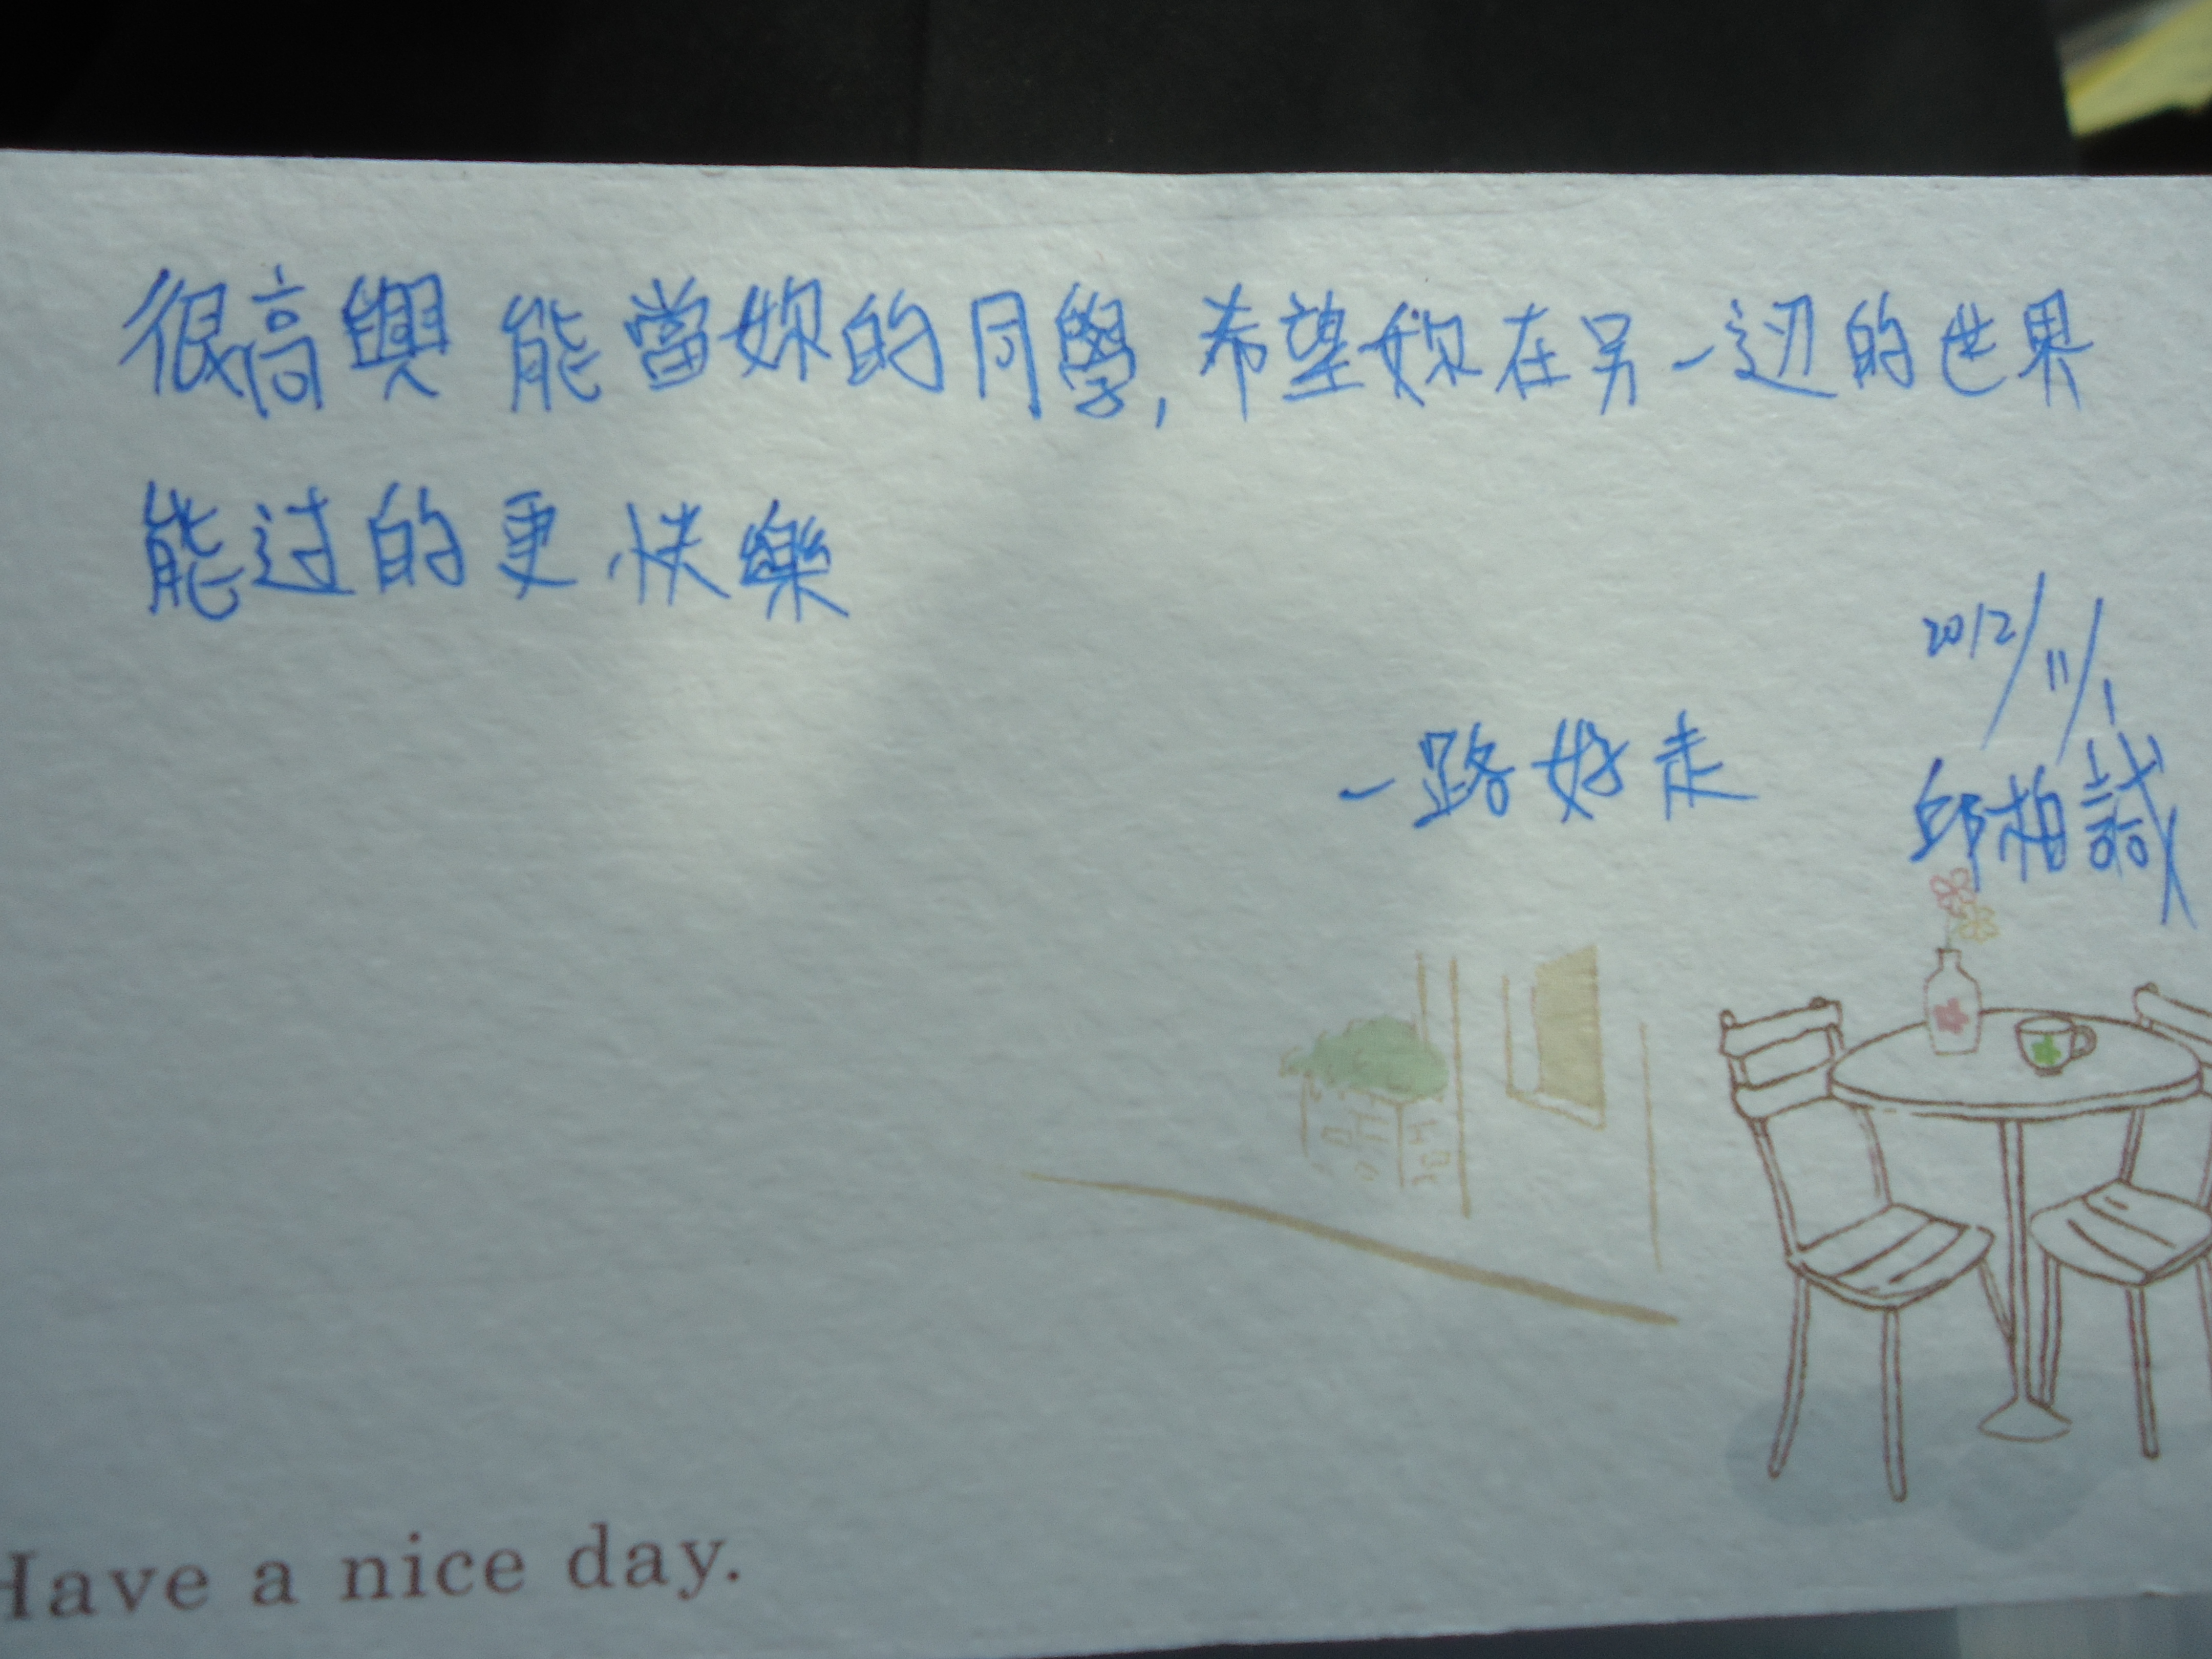 很高興能當妳的同學,希望妳在另一边的世界
能过的更快樂
2012/11/1
一路好走
邱柏誠
Have a nice day.